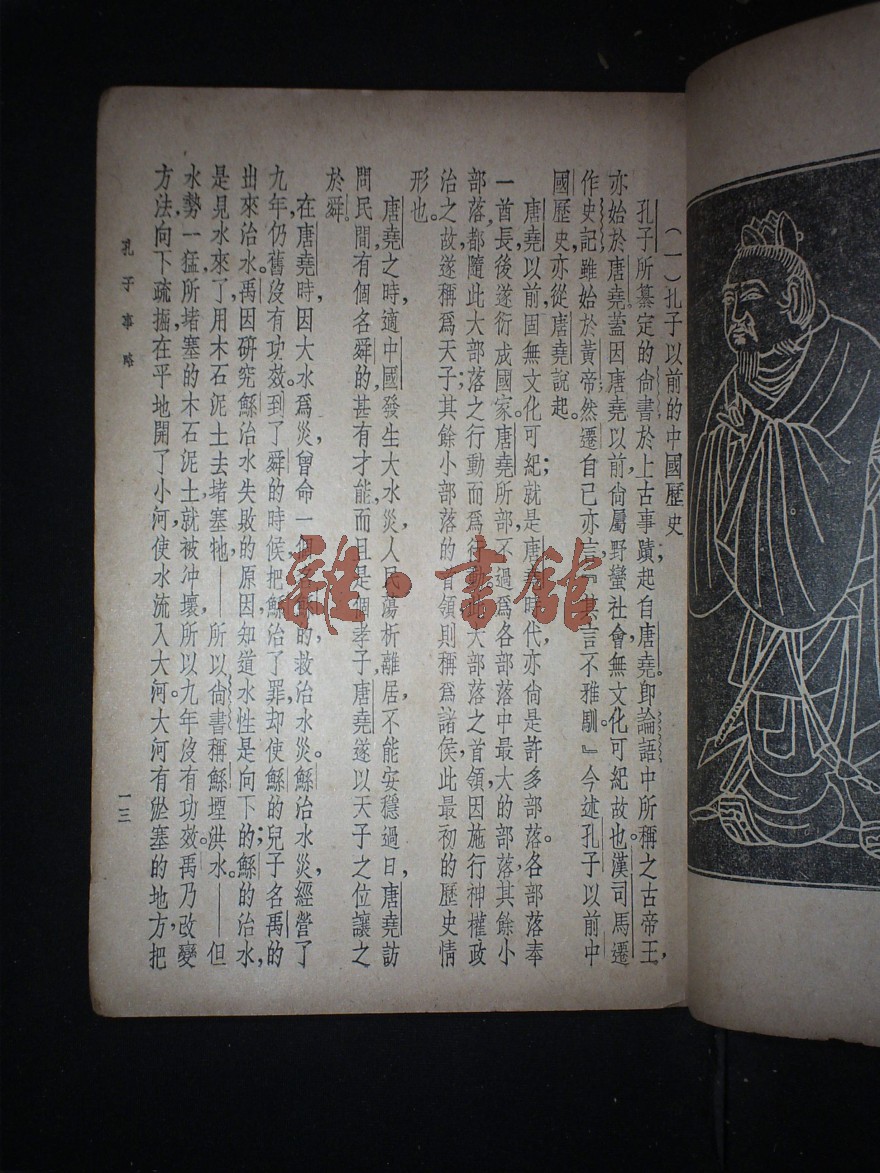 （一）孔子以前的中國歷史
孔子所纂定的尙書於上古事蹟，起自唐堯。卽論語中所稱之古帝王，
亦始於唐堯蓋因唐堯以前，尙屬野蠻社會，無文化可紀故也。漢司馬遷
作史記雖始於黃帝，然遷自己亦言『其言不雅馴。』今述孔子以前中
國歷史，亦從唐堯說起。
唐堯以前，固無文化可紀；就是唐堯時代，亦尙是許多部落。各部落奉
一酋長，後遂衍成國家。唐堯所部，不過爲各部落中最大的部落，其餘小
部落，都隨此大部落之行動而爲行動。此大部落之首領，因施行神權政
治之故，遂稱爲天子；其餘小部落的首領，則稱爲諸侯，此最初的歷史情
形也。
唐堯之時，適中國發生大水災，人民蕩析離居，不能安穩過日，唐堯訪
問民間，有個名舜的，甚有才能，而且是個孝子，唐堯遂以天子之位讓之
於舜。
在唐堯時，因大水爲災，曾命一個名鯀的救治水災。鯀治水災，經營了
九年，仍舊沒有功效。到了舜的時候，把鯀治了罪，却使鯀的兒子名禹的
出來治水。禹因硏究鯀治水失敗的原因，知道水性是向下的；鯀的治水，
是見水來了，用木石泥土去堵塞牠——所以尙書稱鯀堙洪水。——但
水勢一猛，所堵塞的木石泥土，就被冲壞，所以九年沒有功效。禹乃改變
方法，向下疏掘，在平地開了小河，使水流入大河。大河有淤塞的地方，把
孔子事略
一三
雜·書館